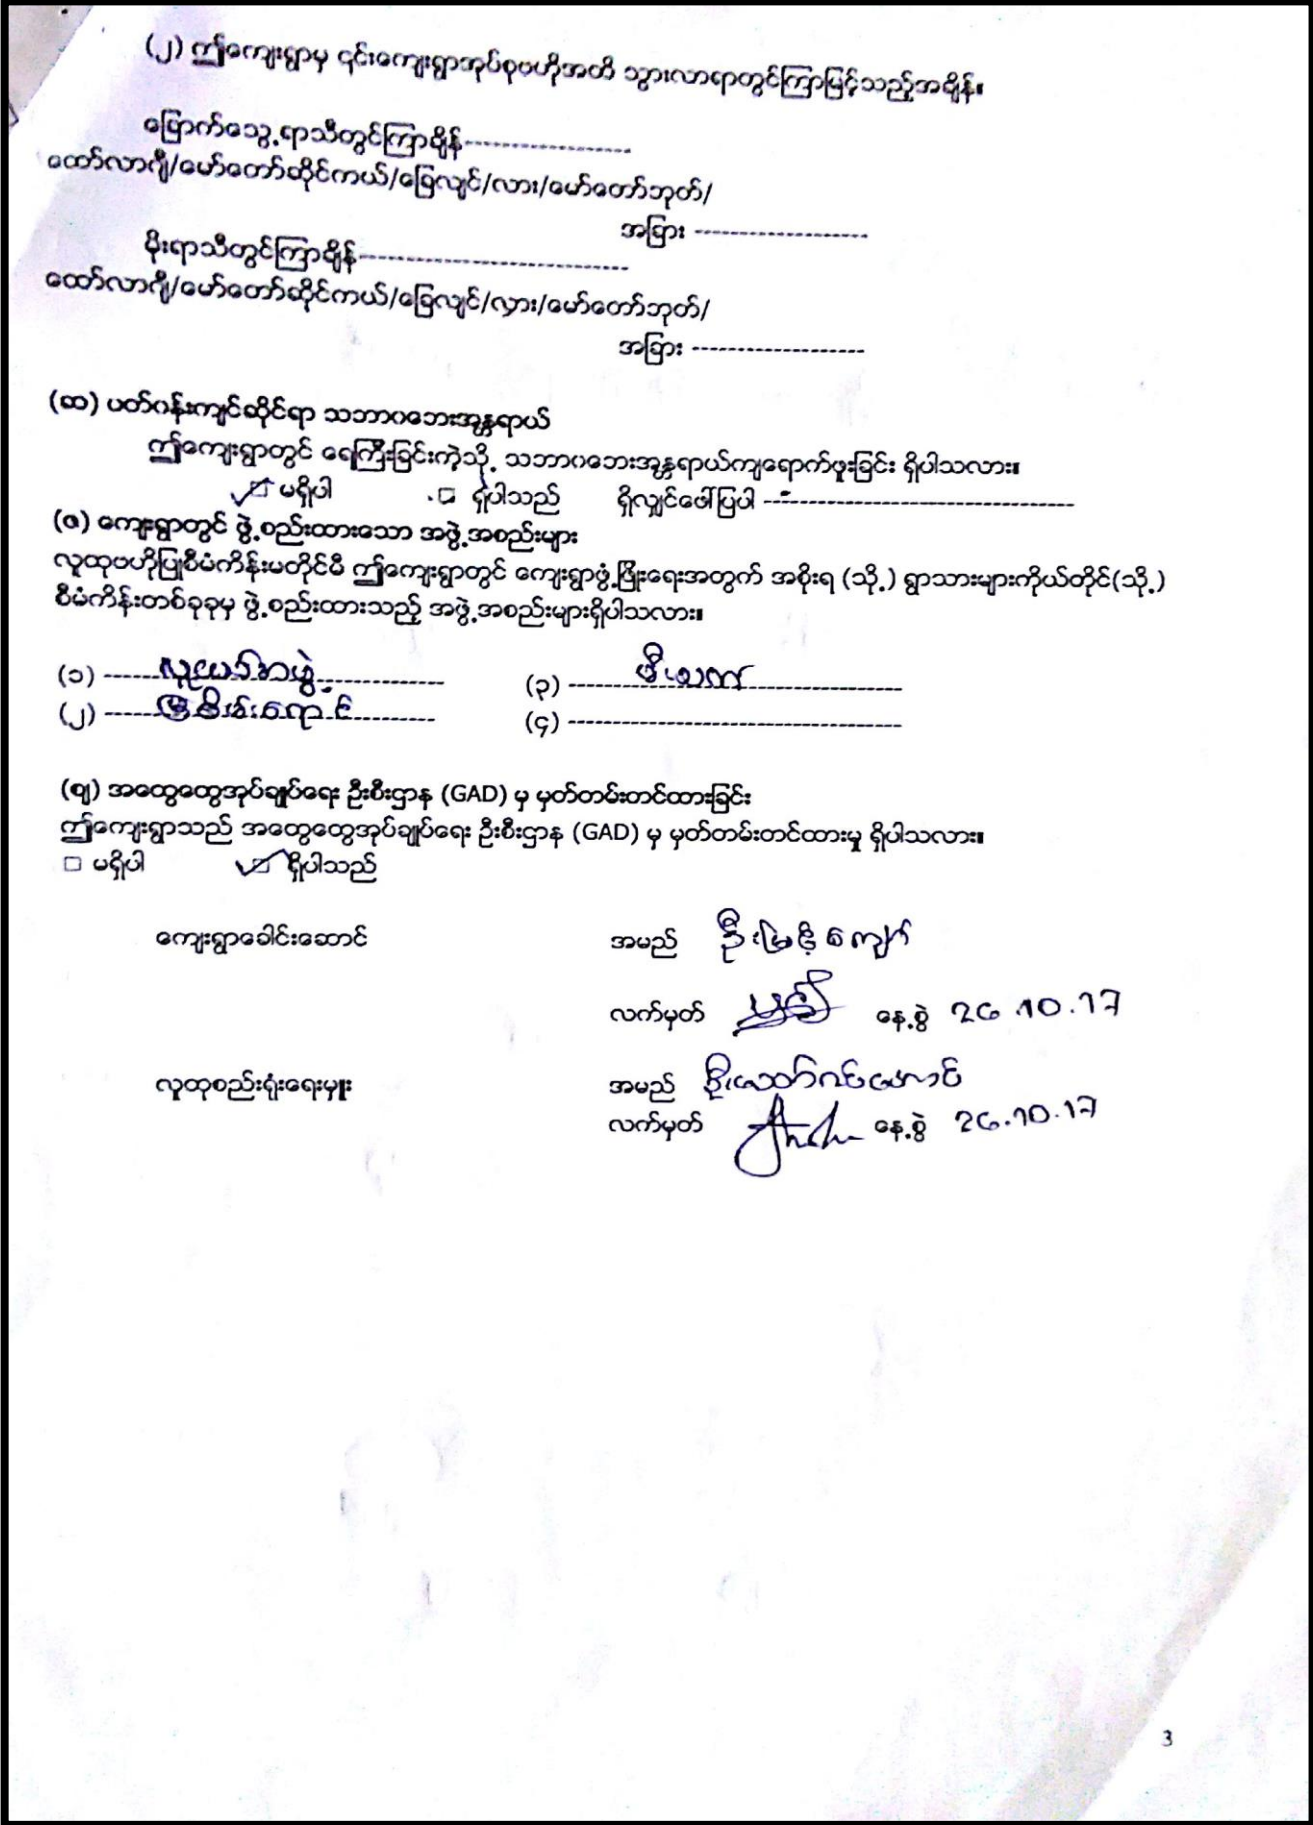 (၂) ဤကျေးရွာမှ ၎င်းကျေးရွာအုပ်စုဗဟိုအထိ သွားလာရာတွင်ကြာမြင့်သည့်အချိန်။
ခြောက်သွေ့ရာသီတွင်ကြာချိန်------------------
ထော်လာဂျီ/မော်တော်ဆိုင်ကယ်/ခြေလျင်/လား/မော်တော်ဘုတ်/
အခြား -------------------
မိုးရာသီတွင်ကြာချိန်------------------------------
ထော်လာဂျီ/မော်တော်ဆိုင်ကယ်/ခြေလျင်/လှား/မော်တော်ဘုတ်/
အခြား -------------------
(ဆ) ပတ်ဝန်းကျင်ဆိုင်ရာ သဘာဝဘေးအန္တရာယ်
ဤကျေးရွာတွင် ရေကြီးခြင်းကဲ့သို့ သဘာဝဘေးအန္တရာယ်ကျရောက်ဖူးခြင်း ရှိပါသလား။
☑ မရှိပါ □ ရှိပါသည် ရှိလျှင်ဖေါ်ပြပါ ----------------------------------
(ဇ) ကျေးရွာတွင် ဖွဲ့စည်းထားသော အဖွဲ့အစည်းများ
လူထုဗဟိုပြုစီမံကိန်းမတိုင်မီ ဤကျေးရွာတွင် ကျေးရွာဖွံ့ဖြိုးရေးအတွက် အစိုးရ (သို့) ရွာသားများကိုယ်တိုင်(သို့)
စီမံကိန်းတစ်ခုခုမှ ဖွဲ့စည်းထားသည့် အဖွဲ့အစည်းများရှိပါသလား။
(၁) ------လူငယ်အဖွဲ့-------------- (၃) -------မီးသတ်-----------------
(၂) ------မြစိမ်းရောင်---------- (၄) -------------------------------------
(ဈ) အထွေထွေအုပ်ချုပ်ရေး ဦးစီးဌာန (GAD) မှ မှတ်တမ်းတင်ထားခြင်း
ဤကျေးရွာသည် အထွေထွေအုပ်ချုပ်ရေး ဦးစီးဌာန (GAD) မှ မှတ်တမ်းတင်ထားမှု ရှိပါသလား။
□ မရှိပါ ☑ ရှိပါသည်
ကျေးရွာခေါင်းဆောင် အမည် ဦးမြင့်ကျော်
လက်မှတ် နေ့စွဲ 26.10.17
လူထုစည်းရုံးရေးမှူး အမည်
လက်မှတ် နေ့စွဲ 26.10.17
3